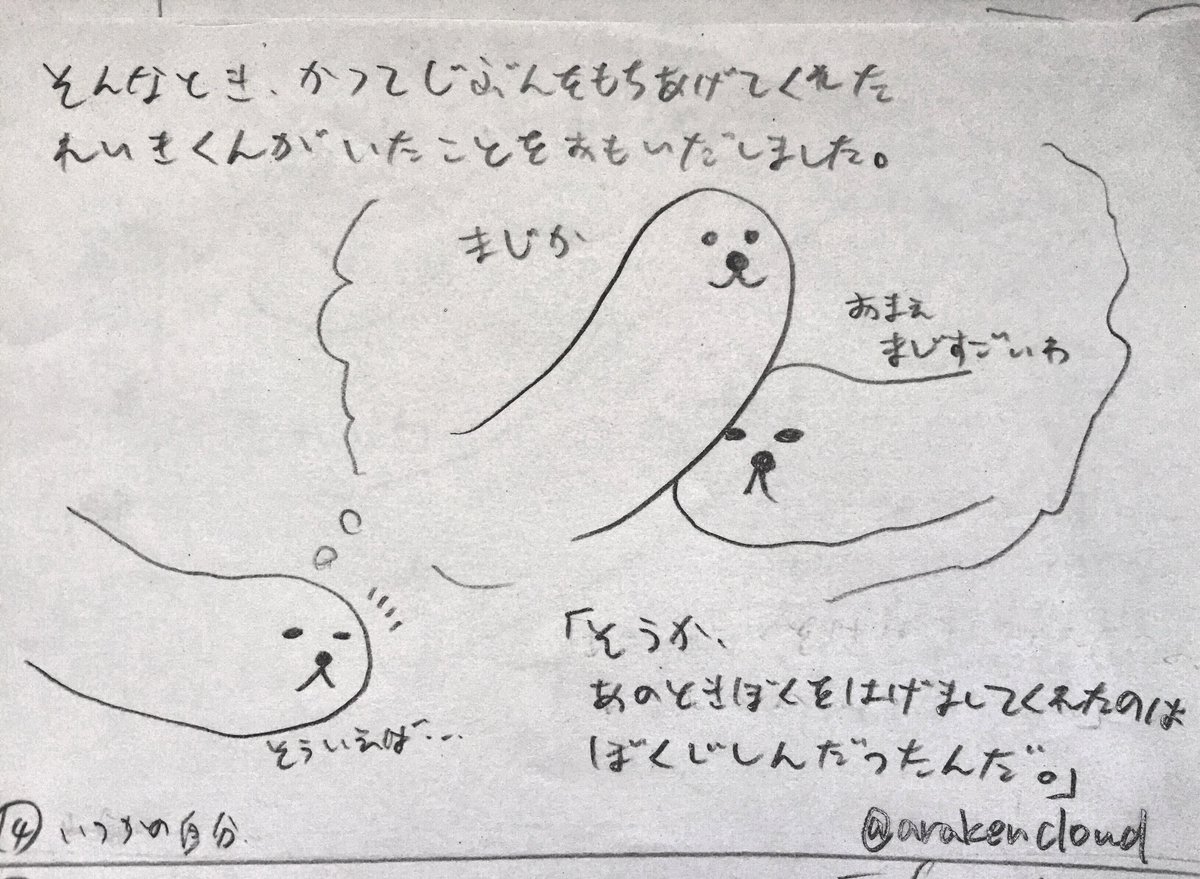 そんなとき、かつてじぶんをもちあげてくれた
れいきくんがいたことをおもいだしました。
まじか
おまえ
まじすごいわ
そういえば…
「そうか、
あのときぼくをはげましてくれたのは
ぼくじしんだったんだ。」
④いつかの自分
@arakencloud